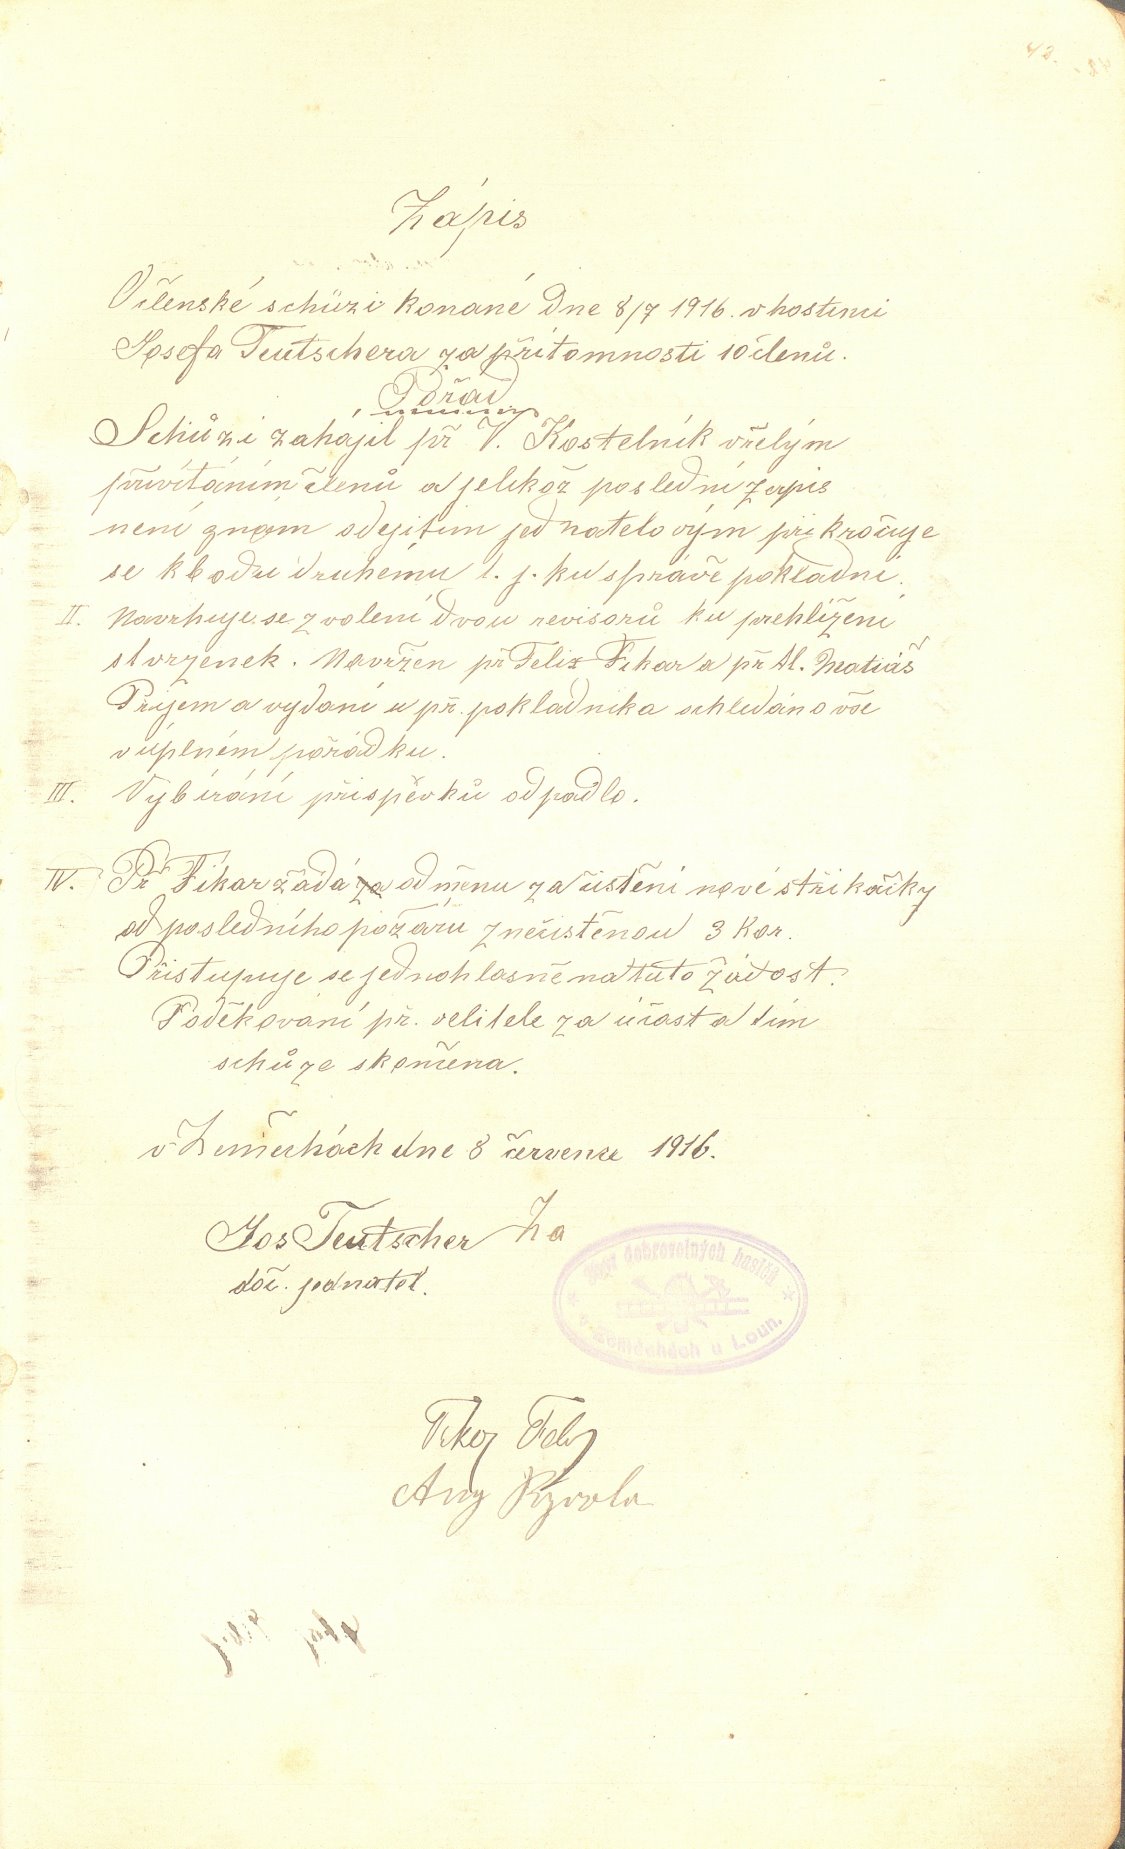 43.
Zápis
Včlenské schůzi konané dne 8/7 1916. v hostinci
Josefa Teutschera za přítomnosti 10 členů.
Pořad
Schůzi zahájil př V. Kostelník vřelým
přivítáním členů a jelikož poslední zapis
není znám odejitim jednatelovým přikročuje
se k bodu druhému t. j. ku správě pokladní.
II. Navrhuje se zvolení dvou revisorů ku prehlížení
stvrzenek. Navržen př Felix Fikar a př Al. Matiáš
Příjem a vydaní u př. pokladníka schledáno vše
v úplném pořádku.
III. Vybírání přispěvků odpadlo.
IV. Př Fikar žádá za odměnu za čistění nové střikačky
od posledního požáru znečistěnou 3 Kor.
Přistupuje se jednohlasně na tuto žádost.
Poděkování př. velitele za účast a tím
schůze skončena.
v Zeměchách dne 8 července 1916.
Jos Teutscher Za
doč. jednatel.
Sbor dobrovolných hasičů
v Zeměchách u Loun.
Fikar Felix
Aug